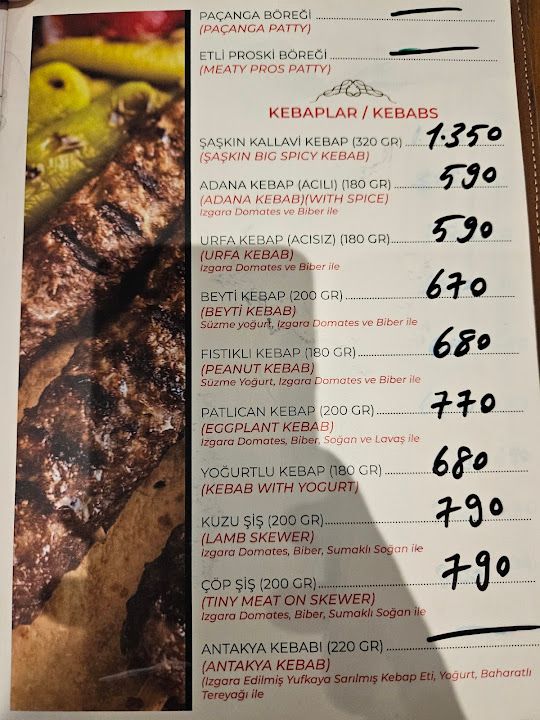 PAÇANGA BÖREĞİ
(PAÇANGA PATTY)
ETLİ PROSKİ BÖREĞİ
(MEATY PROS PATTY)
KEBAPLAR / KEBABS
ŞAŞKIN KALLAVİ KEBAP (320 GR) 1.350
(ŞAŞKIN BIG SPICY KEBAB)
ADANA KEBAP (ACILI) (180 GR) 590
(ADANA KEBAB)(WITH SPICE)
Izgara Domates ve Biber ile
URFA KEBAP (ACISIZ) (180 GR) 590
(URFA KEBAB)
Izgara Domates ve Biber ile
BEYTİ KEBAP (200 GR) 670
(BEYTİ KEBAB)
Süzme yoğurt, Izgara Domates ve Biber ile
FISTIKLI KEBAP (180 GR) 680
(PEANUT KEBAB)
Süzme Yoğurt, Izgara Domates ve Biber ile
PATLICAN KEBAP (200 GR) 770
(EGGPLANT KEBAB)
Izgara Domates, Biber, Soğan ve Lavaş ile
YOĞURTLU KEBAP (180 GR) 680
(KEBAB WITH YOGURT)
KUZU ŞİŞ (200 GR) 790
(LAMB SKEWER)
Izgara Domates, Biber, Sumaklı Soğan ile
ÇÖP ŞİŞ (200 GR) 790
(TINY MEAT ON SKEWER)
Izgara Domates, Biber, Sumaklı Soğan ile
ANTAKYA KEBABI (220 GR)
(ANTAKYA KEBAB)
(Izgara Edilmiş Yufkaya Sarılmış Kebap Eti, Yoğurt, Baharatlı
Tereyağı ile